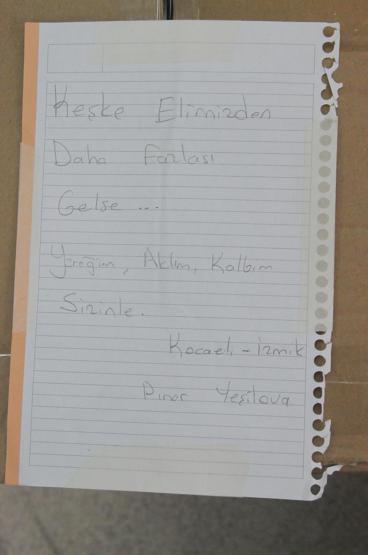 Keşke Elimizden
Daha Fazlası
Gelse ...
Yüreğim, Aklım, Kalbim
Sizinle.
Kocaeli - izmit
Pınar Yeşilova